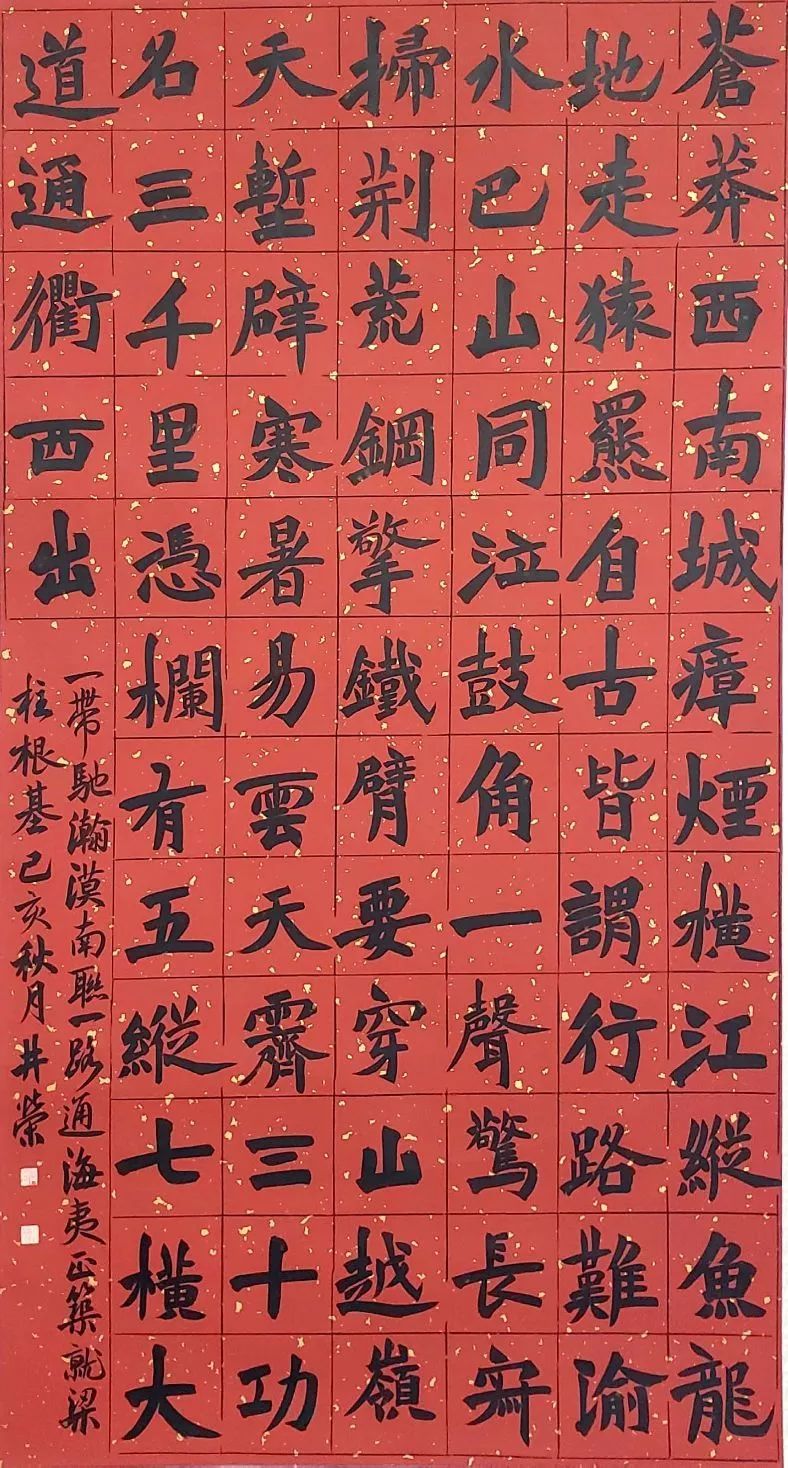 蒼莽西南城瘴煙橫江縱魚龍
地走猿羆自古皆謂行路難渝
水巴山同泣鼓角一聲驚長
掃荆荒鋼擎鐵臂要穿山越嶺
天塹辟寒暑易雲天霽三十功
名三千里憑欄有五縱七橫大
道通衢西出
一帶馳瀚漠南聯一路通海夷正築就梁
柱根基己亥秋月井榮